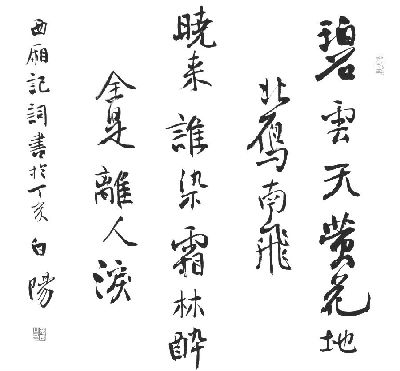 碧雲天黄花地
北鴈南飛
曉来誰染霜林醉
全是離人淚
西廂記詞書於丁亥白陽